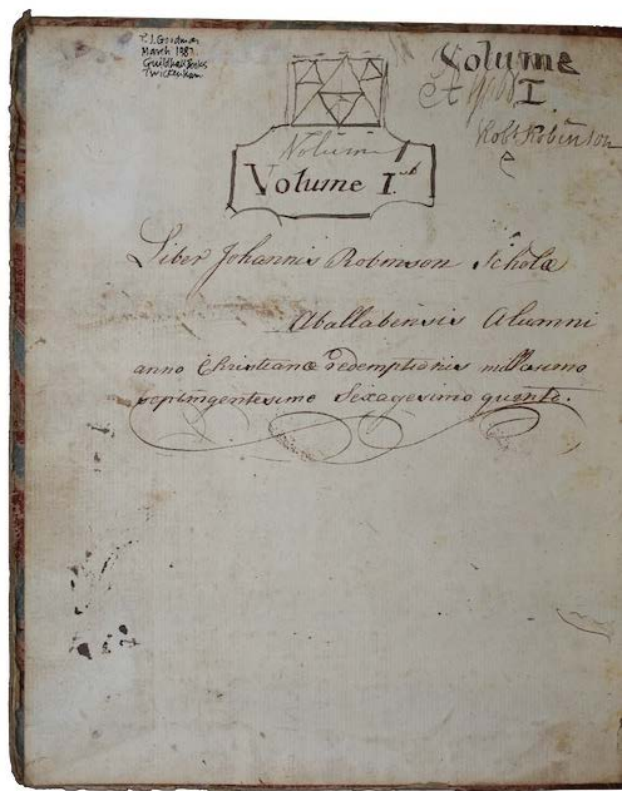 T. J. Goodman
March 1987.
Guildhall Books
Twickenham
Volume
I
Rob.t Robinson
e
Volume
Volume I.st
Liber Johannis Robinson Scholæ
Aballabensis Alumni
anno Christianæ redemptionis millesimo
septingentesimo Sexagesimo quinto.